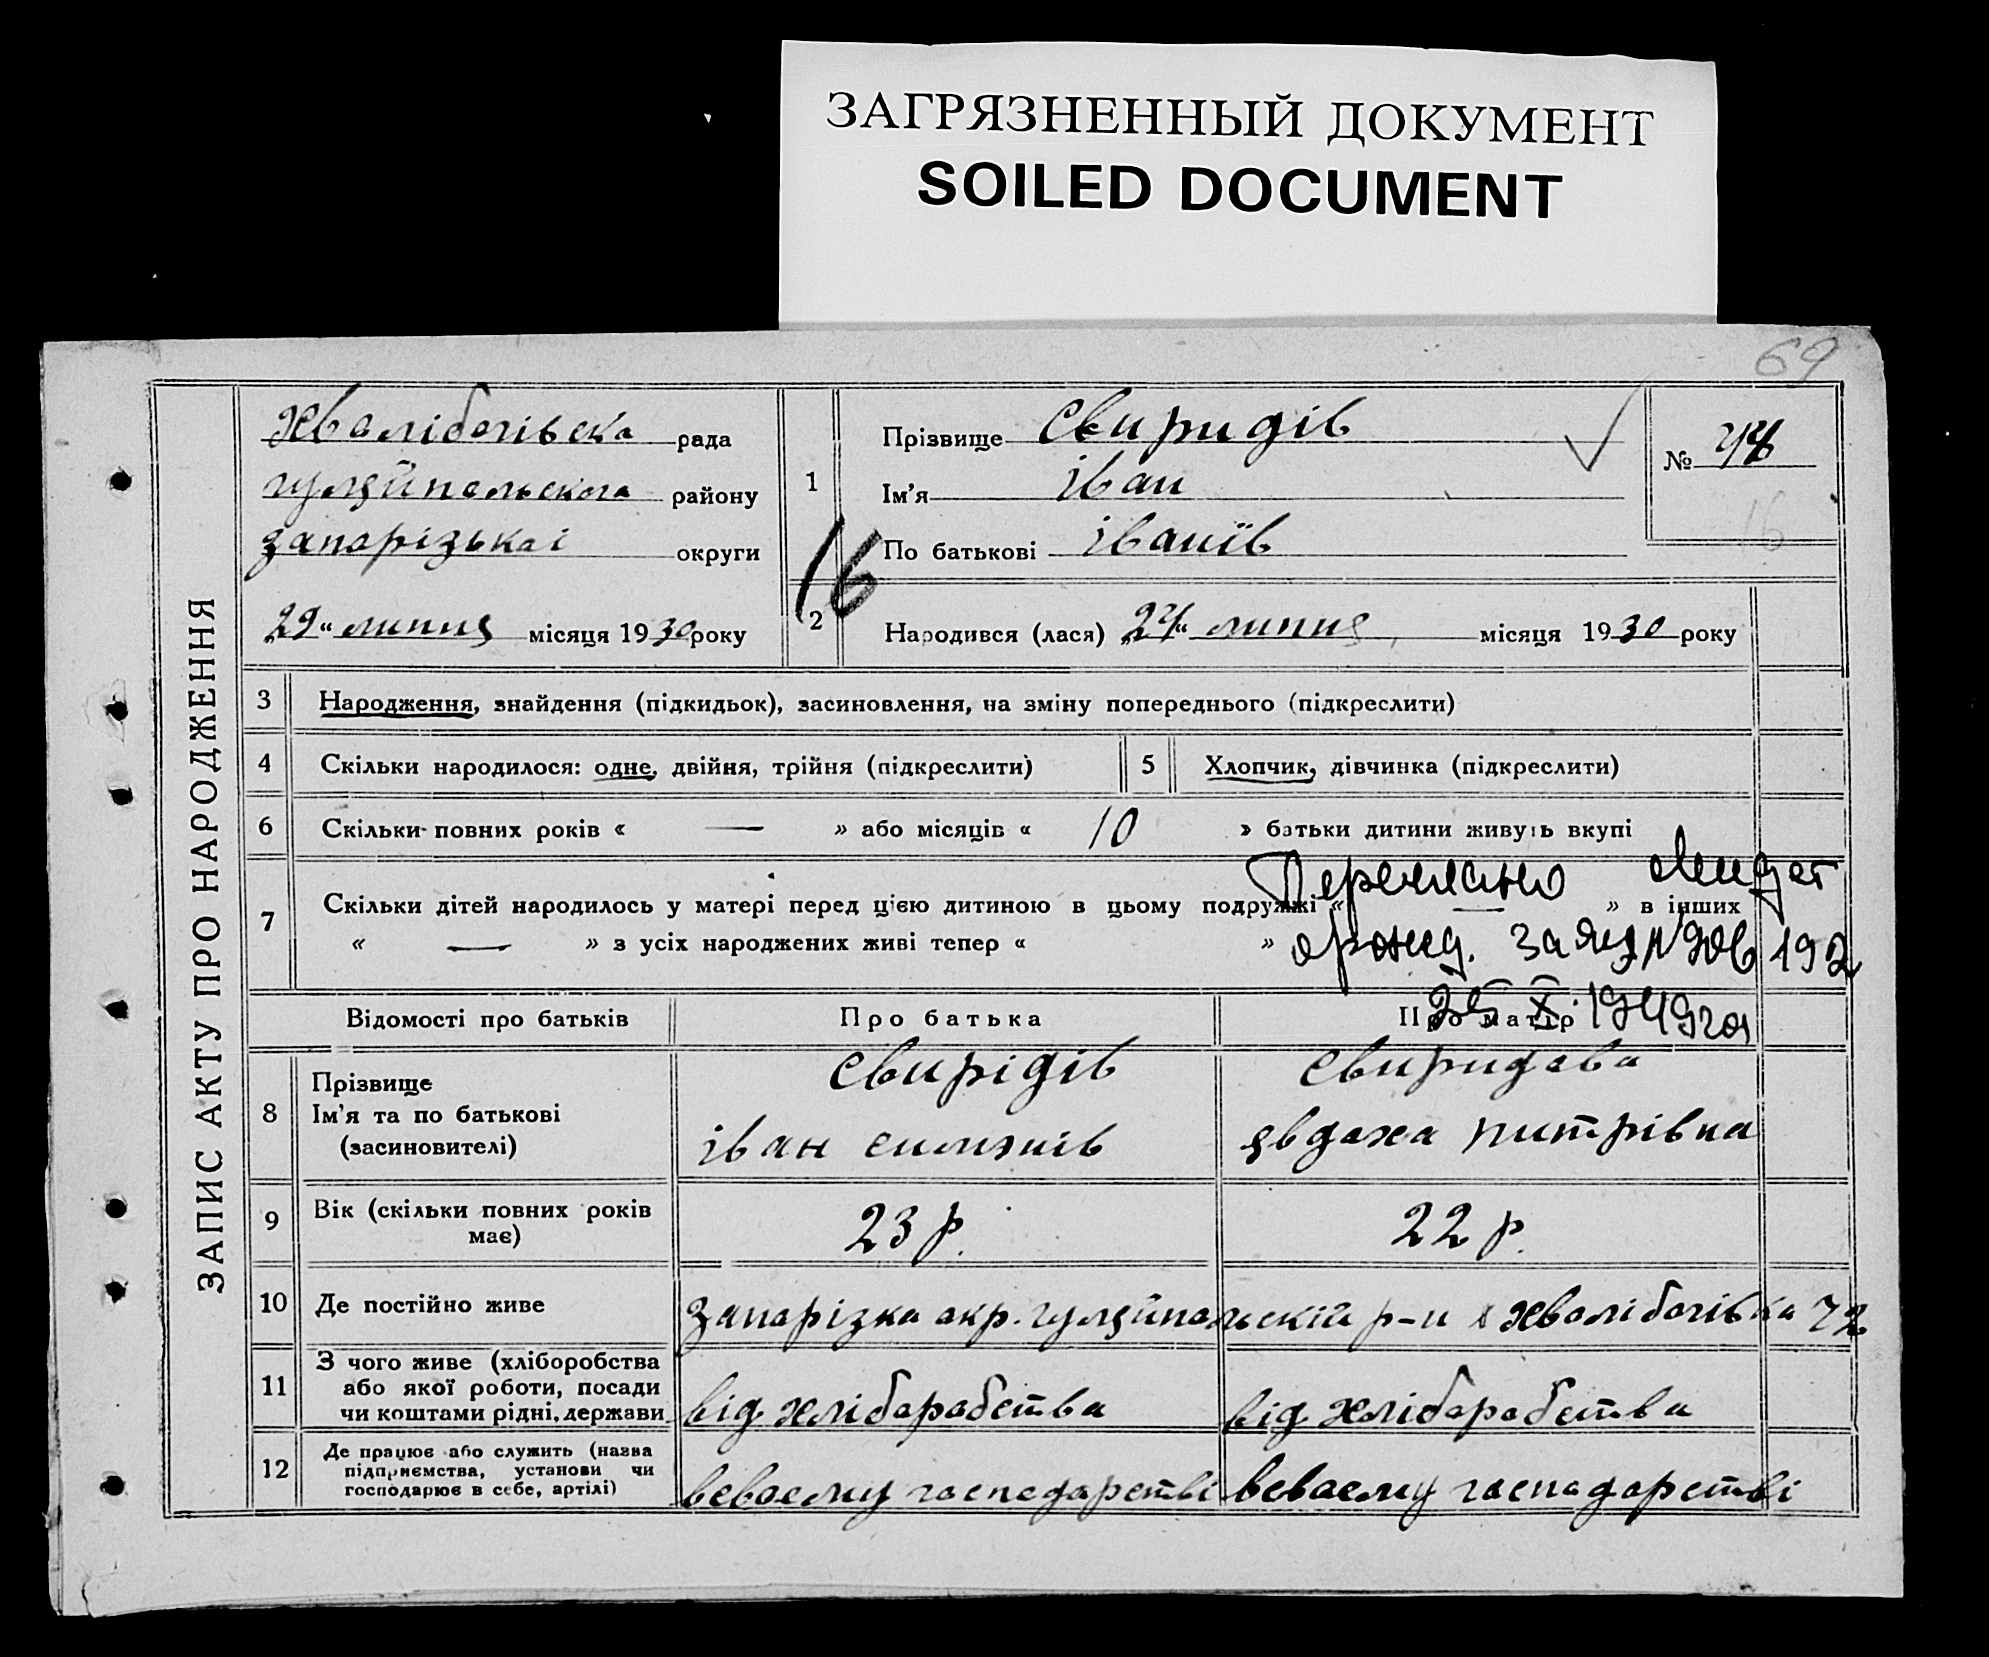 ЗАГРЯЗНЕННЫЙ ДОКУМЕНТ
SOILED DOCUMENT
69
ЗАПИС АКТУ ПРО НАРОДЖЕННЯ
хвалібогівська рада
гуляйпольского району
запорізькоі округи
„29“ липня місяця 1930 року
1
Прізвище Свиридів
Ім’я іван
По батькові іваиїв
№
16
16
2
Народився (лася) „24“ липня місяця 1930 року
3 Народження, знайдення (підкидьок), засиновлення, на зміну попереднього (підкреслити)
4 Скільки народилося: одне, двійня, трійня (підкреслити)
5 Хлопчик, дівчинка (підкреслити)
6 Скільки повних років « — » або місяців « 10 » батьки дитини живуть вкупі
7 Скільки дітей народилось у матері перед цією дитиною в цьому подружжі « — » в інших
« — » з усіх народжених живі тепер « »
25 X 1949
Відомості про батьків Про батька Про матір
8 Прізвище
Ім’я та по батькові
(засиновителі)
Свирідів
іван
Свиридова
явдоха питрівна
9 Вік (скільки повних років
має)
23 р.
22 р.
10 Де постійно живе
запорізка окр. гуляйпольскій р-н х хволібогівка
11 З чого живе (хліборобства
або якої роботи, посади
чи коштами рідні, держави
від хліборобства
від хліборобства
12 Де працює або служить (назва
підприємства, установи чи
господарює в себе, артілі)
всвоему господарстві
всвоему господарстві